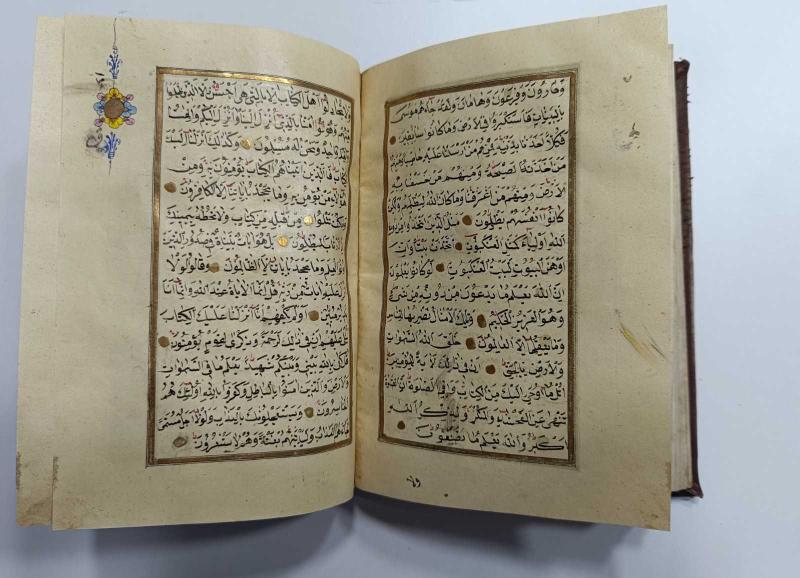 وَقَارُونَ وَفِرْعَوْنَ وَهَامَانَ وَلَقَدْ جَاءَهُمْ مُوسَى
بِالْبَيِّنَاتِ فَاسْتَكْبَرُوا فِي الْأَرْضِ وَمَا كَانُوا سَابِقِينَ
فَكُلًّا أَخَذْنَا بِذَنْبِهِ فَمِنْهُمْ مَنْ أَرْسَلْنَا عَلَيْهِ حَاصِبًا وَمِنْهُمْ
مَنْ أَخَذَتْهُ الصَّيْحَةُ وَمِنْهُمْ مَنْ خَسَفْنَا بِهِ
الْأَرْضَ وَمِنْهُمْ مَنْ أَغْرَقْنَا وَمَا كَانَ اللَّهُ لِيَظْلِمَهُمْ وَلَكِنْ
كَانُوا أَنْفُسَهُمْ يَظْلِمُونَ مَثَلُ الَّذِينَ اتَّخَذُوا مِنْ دُونِ
اللَّهِ أَوْلِيَاءَ كَمَثَلِ الْعَنْكَبُوتِ اتَّخَذَتْ بَيْتًا وَإِنَّ
أَوْهَنَ الْبُيُوتِ لَبَيْتُ الْعَنْكَبُوتِ لَوْ كَانُوا يَعْلَمُونَ
إِنَّ اللَّهَ يَعْلَمُ مَا يَدْعُونَ مِنْ دُونِهِ مِنْ شَيْءٍ
وَهُوَ الْعَزِيزُ الْحَكِيمُ وَتِلْكَ الْأَمْثَالُ نَضْرِبُهَا لِلنَّاسِ
وَمَا يَعْقِلُهَا إِلَّا الْعَالِمُونَ خَلَقَ اللَّهُ السَّمَوَاتِ
وَالْأَرْضَ بِالْحَقِّ إِنَّ فِي ذَلِكَ لَآيَةً لِلْمُؤْمِنِينَ
اتْلُ مَا أُوحِيَ إِلَيْكَ مِنَ الْكِتَابِ وَأَقِمِ الصَّلَوةَ إِنَّ الصَّلَوةَ
تَنْهَى عَنِ الْفَحْشَاءِ وَالْمُنْكَرِ وَلَذِكْرُ اللَّهِ
أَكْبَرُ وَاللَّهُ يَعْلَمُ مَا تَصْنَعُونَ
وَلَا تُجَادِلُوا أَهْلَ الْكِتَابِ إِلَّا بِالَّتِي هِيَ أَحْسَنُ إِلَّا الَّذِينَ ظَلَمُوا
مِنْهُمْ وَقُولُوا آمَنَّا بِالَّذِي أُنْزِلَ إِلَيْنَا وَأُنْزِلَ إِلَيْكُمْ وَإِلَهُنَا
وَإِلَهُكُمْ وَاحِدٌ وَنَحْنُ لَهُ مُسْلِمُونَ وَكَذَلِكَ أَنْزَلْنَا إِلَيْكَ
الْكِتَابَ فَالَّذِينَ آتَيْنَاهُمُ الْكِتَابَ يُؤْمِنُونَ بِهِ وَمِنْ
هَؤُلَاءِ مَنْ يُؤْمِنُ بِهِ وَمَا يَجْحَدُ بِآيَاتِنَا إِلَّا الْكَافِرُونَ
وَمَا كُنْتَ تَتْلُوا مِنْ قَبْلِهِ مِنْ كِتَابٍ وَلَا تَخُطُّهُ بِيَمِينِكَ
إِذًا لَارْتَابَ الْمُبْطِلُونَ بَلْ هُوَ آيَاتٌ بَيِّنَاتٌ فِي صُدُورِ الَّذِينَ
أُوتُوا الْعِلْمَ وَمَا يَجْحَدُ بِآيَاتِنَا إِلَّا الظَّالِمُونَ وَقَالُوا لَوْلَا
أُنْزِلَ عَلَيْهِ آيَاتٌ مِنْ رَبِّهِ قُلْ إِنَّمَا الْآيَاتُ عِنْدَ اللَّهِ وَإِنَّمَا أَنَا
نَذِيرٌ مُبِينٌ أَوَلَمْ يَكْفِهِمْ أَنَّا أَنْزَلْنَا عَلَيْكَ الْكِتَابَ
يُتْلَى عَلَيْهِمْ إِنَّ فِي ذَلِكَ لَرَحْمَةً وَذِكْرَى لِقَوْمٍ يُؤْمِنُونَ
قُلْ كَفَى بِاللَّهِ بَيْنِي وَبَيْنَكُمْ شَهِيدًا يَعْلَمُ مَا فِي السَّمَوَاتِ
وَالْأَرْضِ وَالَّذِينَ آمَنُوا بِالْبَاطِلِ وَكَفَرُوا بِاللَّهِ أُولَئِكَ هُمُ
الْخَاسِرُونَ وَيَسْتَعْجِلُونَكَ بِالْعَذَابِ وَلَوْلَا أَجَلٌ مُسَمًّى
لَجَاءَهُمُ الْعَذَابُ وَلَيَأْتِيَنَّهُمْ بَغْتَةً وَهُمْ لَا يَشْعُرُونَ